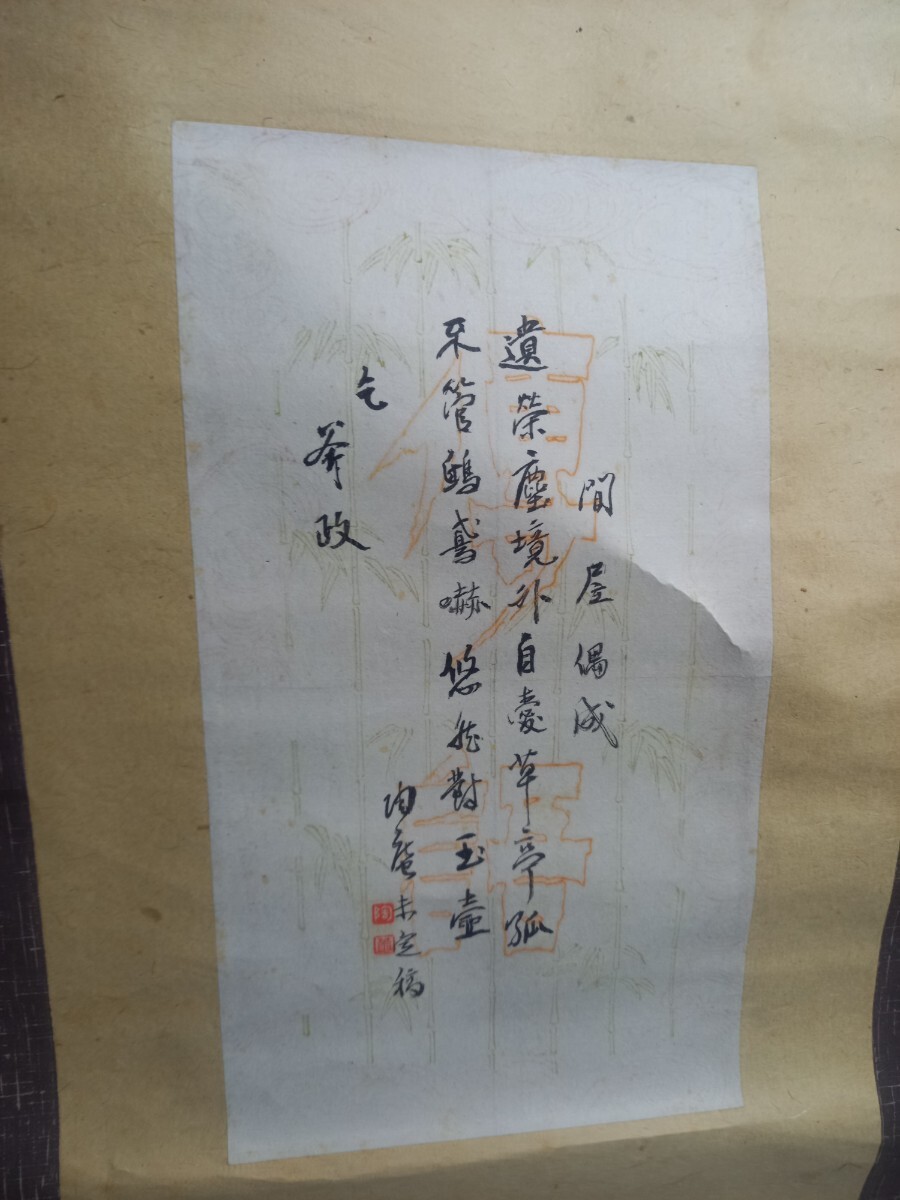 間居偶成
遺榮塵境外自愛草亭孤
不管鴟鳶嚇悠然對玉壺
陶庵未定稿
乞
斧政